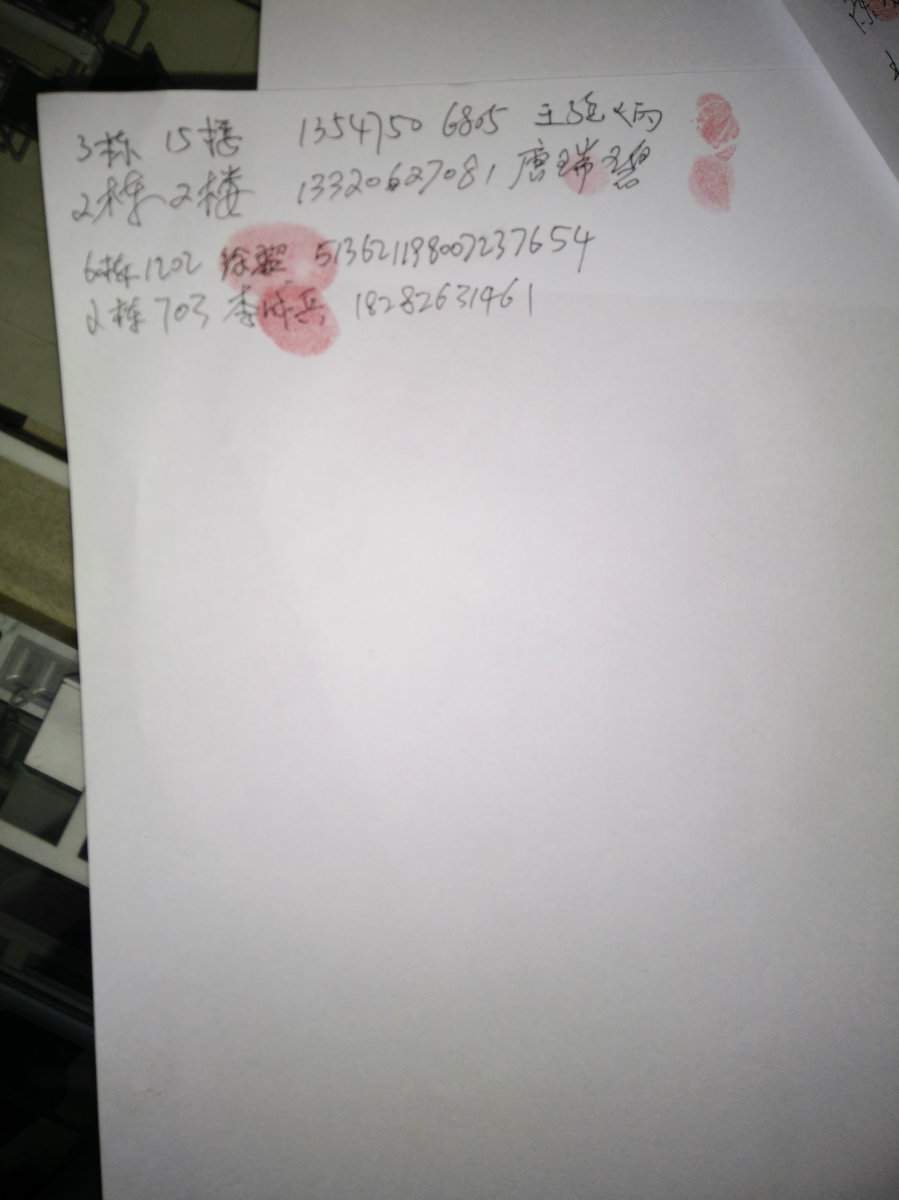 3栋 15楼 13547506805 王
2栋2楼 13320627081 唐瑞碧
6栋1202 徐 513621198007237654
2栋703 李成兵 18282631461